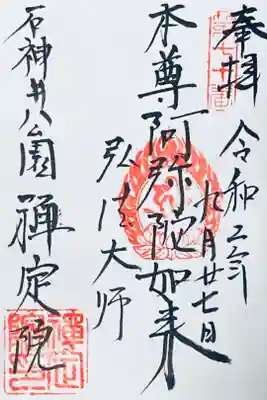 奉拝
令和二年
九月廿七日
本尊阿弥陀如来
弘法大師
石神井公園
禅定院